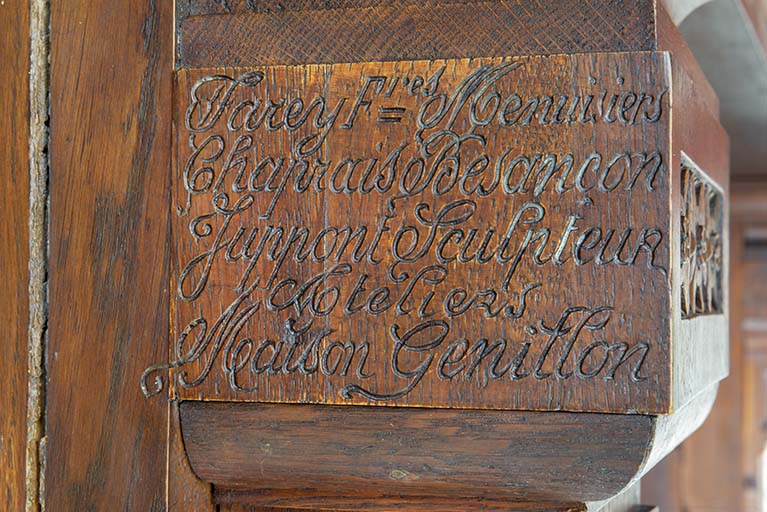 Farey Fres Menuisiers
Chaprais Besançon
Juppont Sculpteur
Ateliers
Maison Genillon